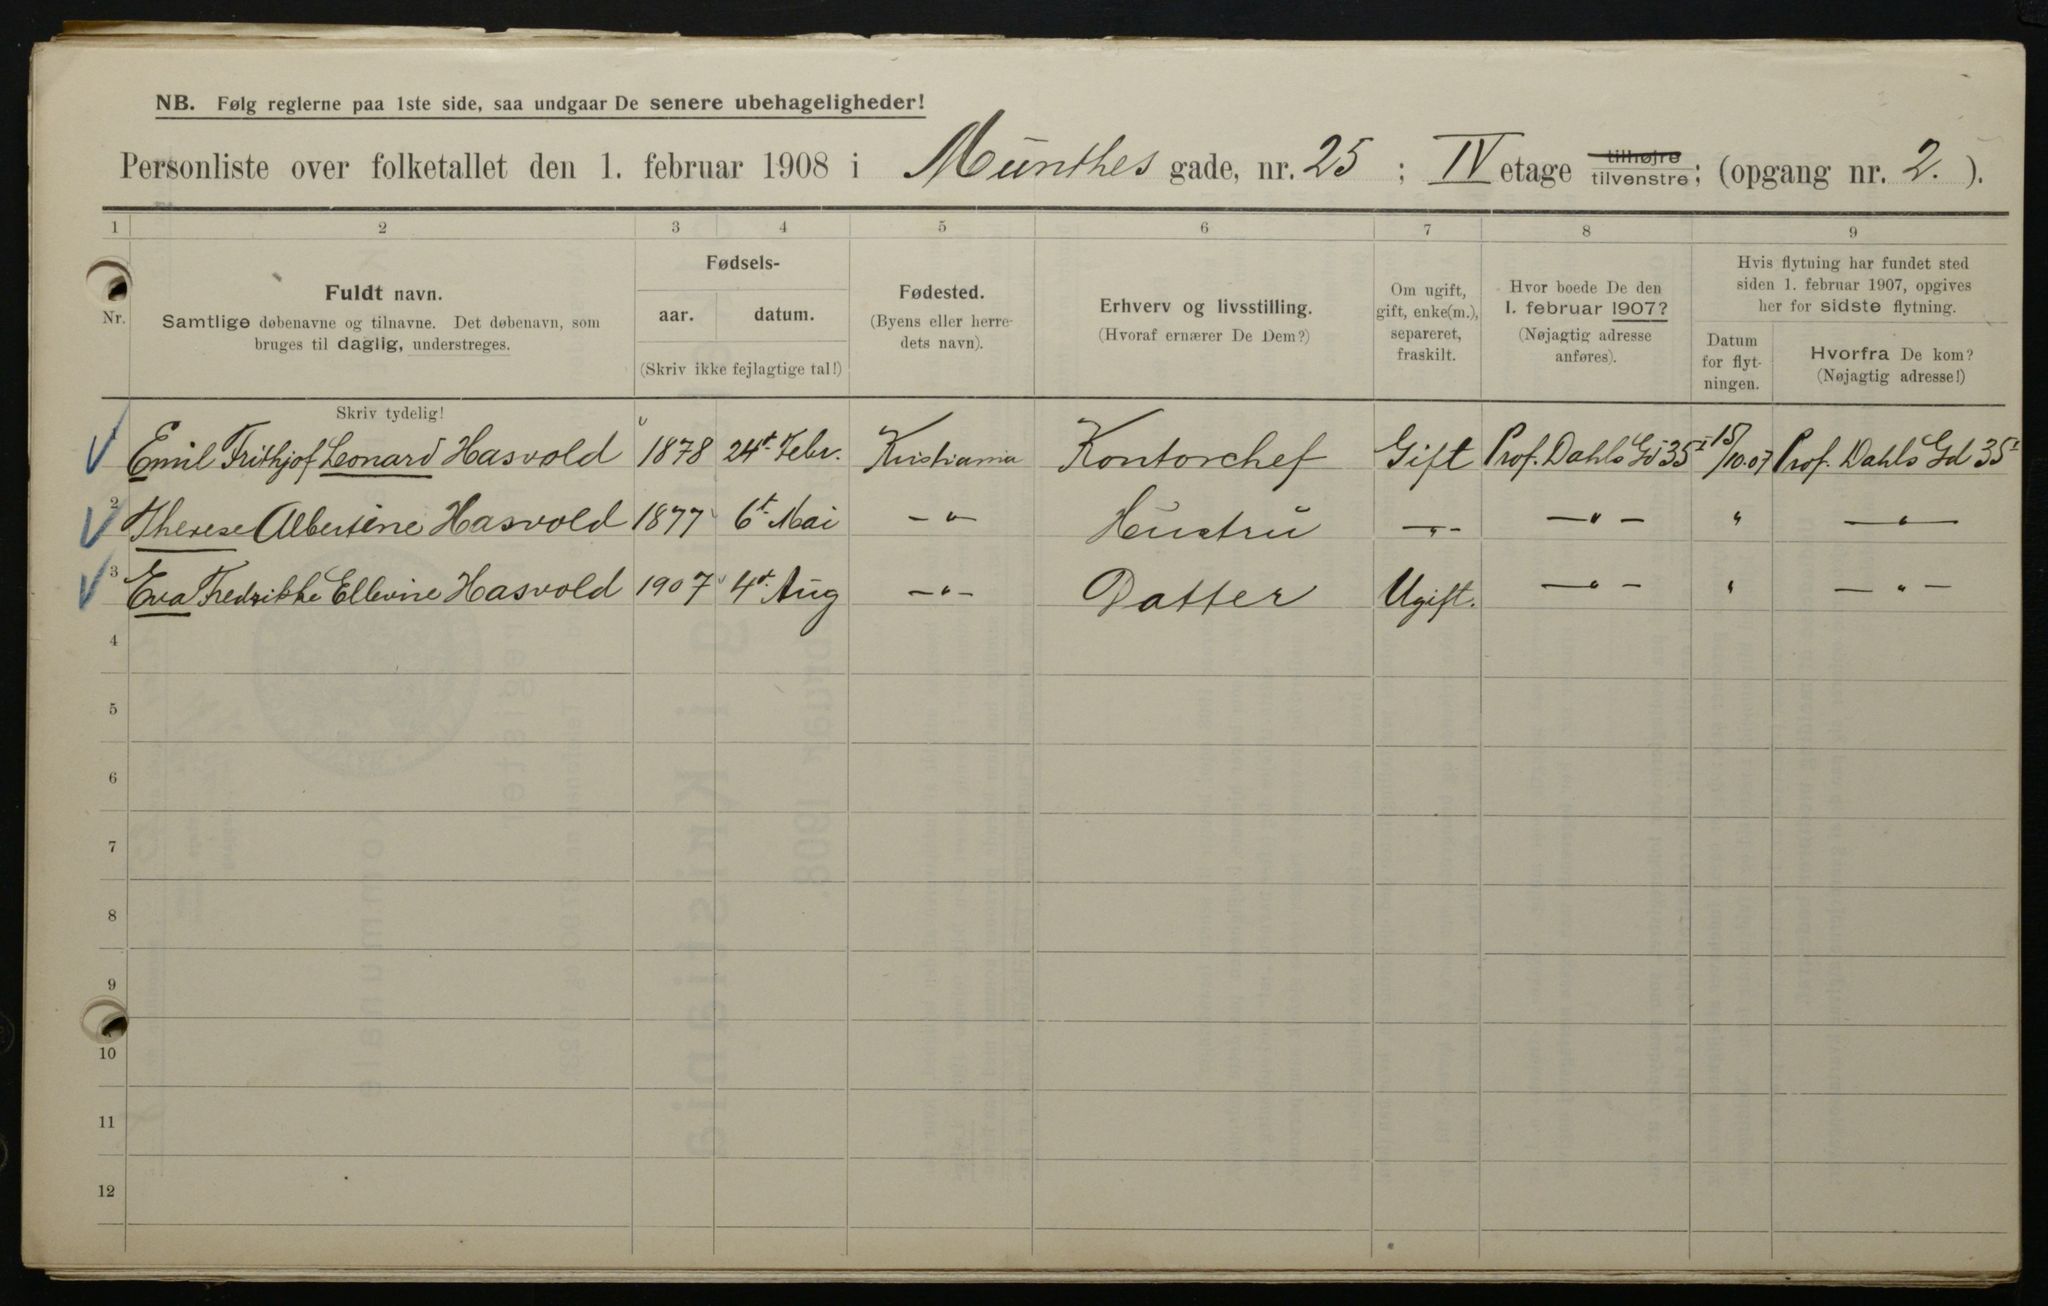 NB. Følg reglerne paa 1ste side, saa undgaar De senere ubehageligheder!
Personliste over folketallet den 1. februar 1908 i Munthes gade, nr. 25 ; IV etage tilhøjre tilvenstre; (opgang nr. 2. ).
1 2 3 4 5 6 7 8 9
Nr.
Fuldt navn.
Samtlige døbenavne og tilnavne. Det døbenavn, som
bruges til daglig, understreges.
Fødsels-
aar. datum.
(Skriv ikke fejlagtige tal!)
Fødested.
(Byens eller herre-
dets navn).
Erhverv og livsstilling.
(Hvoraf ernærer De Dem?)
Om ugift,
gift, enke(m.),
separeret,
fraskilt.
Hvor boede De den
1. februar 1907?
(Nøjagtig adresse
anføres).
Hvis flytning har fundet sted
siden 1. februar 1907, opgives
her for sidste flytning.
Datum
for flyt-
ningen.
Hvorfra De kom?
(Nøjagtig adresse!)
Skriv tydelig!
Emil Frithjof Leonard Hasvold 1878 24t. Febr. Kristiania Kontorchef Gift Prof. Dahls Gd 35I 15/10.07 Prof. Dahls Gd 35I
2 Therese Albertine Hasvold 1877 6t. Mai — " — Hustru — " — — " — " — " —
3 Eva Fredrikke Ellevine Hasvold 1907 4t. Aug — " — Datter Ugift. — " — " — " —
4
5
6
7
8
9
10
11
12